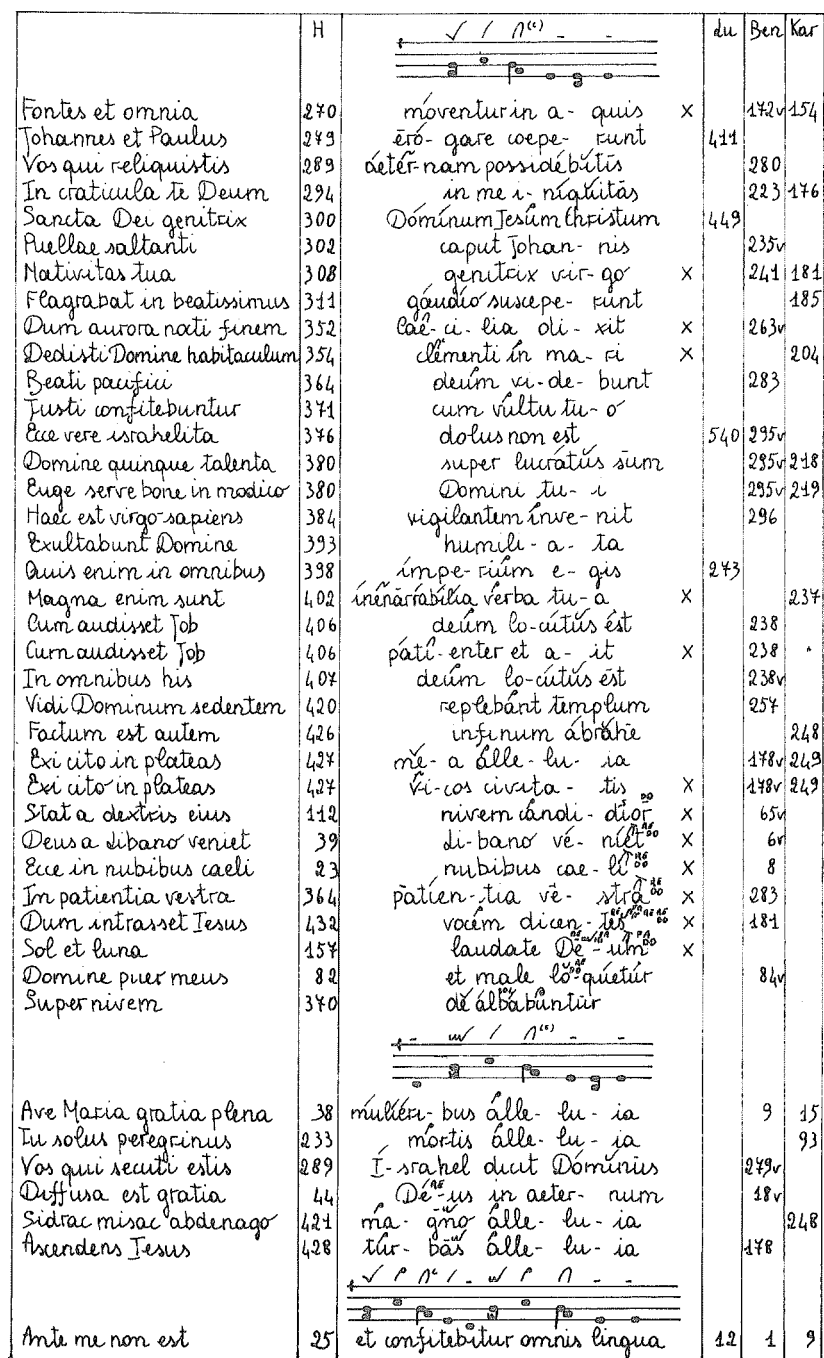 H du Ben Kar
Fontes et omnia 270 moventur in a- quis X 172v 154
Johannes et Paulus 279 ero- gare coepe- runt 411
Vos qui reliquistis 289 aeter-nam possidebitis 280
In craticula te Deum 294 in me i- niquitas 223 176
Sancta Dei genitrix 300 Dominum Jesum Christum 449
Puellae saltanti 302 caput Johan- nis 235v
Nativitas tua 308 genitrix vir- go X 241 181
Flagrabat in beatissimus 311 gaudio suscepe- runt 185
Dum aurora nocti finem 352 Cae- ci- lia di- xit X 263v
Dedisti Domine habitaculum 354 clementi in ma- ri X 204
Beati pacifici 364 deum vi- de- bunt 283
Justi confitebuntur 371 cum vultu tu- o
Ecce vere israhelita 376 dolus non est 540 295v
Domine quinque talenta 380 super lucratus sum 295v 218
Euge serve bone in modico 380 Domini tu- i 295v 219
Haec est virgo sapiens 384 vigilantem inve- nit 296
Exultabunt Domine 393 humili- a- ta
Quis enim in omnibus 398 impe- rium e- gis 273
Magna enim sunt 402 inenarrabilia verba tu- a X 237
Cum audisset Job 406 deum lo-cutus est 238
Cum audisset Job 406 pati- enter et a- it X 238
In omnibus his 407 deum lo-cutus est 238v
Vidi Dominum sedentem 420 replebant templum 257
Factum est autem 426 in sinum abrahe 248
Exi cito in plateas 427 me- a alle- lu- ia 178v 249
Exi cito in plateas 427 Vi- cos civita- tis X 178v 249
Stat a dextris eius 112 nivem candi- dior X 65v
Deus a Libano veniet 39 Li- bano ve- niet X 6v
Ecce in nubibus caeli 23 nubibus cae- li X 8
In patientia vestra 364 patien- tia ve- stra X 283
Dum intrasset Iesus 432 vocem dicen- tes X 181
Sol et luna 157 laudate De- um X
Domine puer meus 82 et male lo- quetur 84v
Super nivem 370 de albabuntur
Ave Maria gratia plena 38 mulieri- bus alle- lu- ia 9 15
Tu solus peregrinus 233 mortis alle- lu- ia 93
Vos qui secuti estis 289 I- srahel dicit Dominus 279v
Diffusa est gratia 44 De- us in aeter- num 18v
Sidrac misac abdenago 421 ma- gno alle- lu- ia 248
Ascendens Iesus 428 tur- bas alle- lu- ia 178
Ante me non est 25 et confitebitur omnis lingua 12 1 9